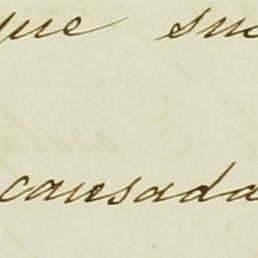 que suc
causada